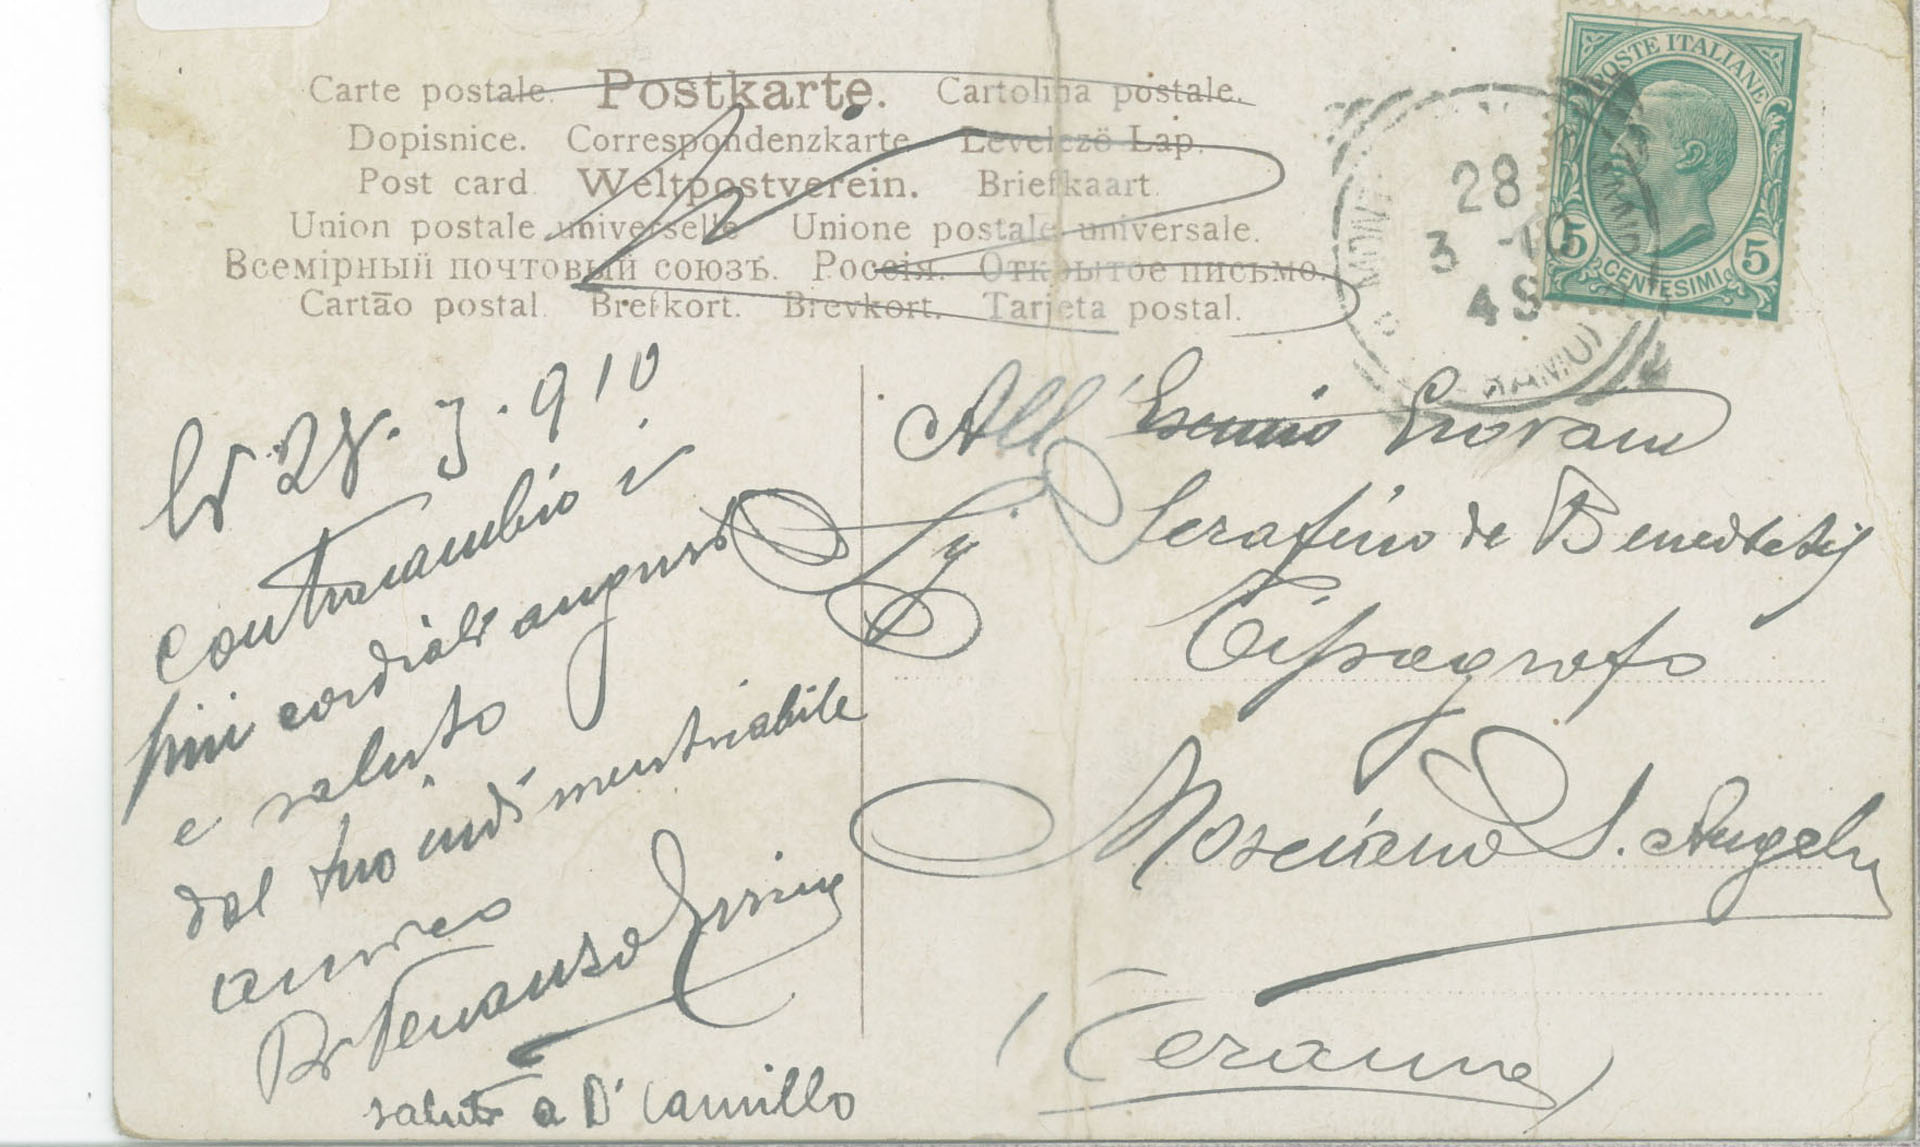 Carte postale. Postkarte. Cartolina postale.
Dopisnice. Correspondenzkarte. Levelező Lap.
Post card Weltpostverein. Briefkaart.
Union postale universelle Unione postale universale.
Всемірный почтовый союзъ. Россія. Открытое письмо.
Cartão postal. Brefkort. Brevkort. Tarjeta postal.
POSTE ITALIANE
5 CENTESIMI 5
28
3 -10
4S
28. 3. 910
contracambio i
più cordiali auguri
e saluto
dal tuo indimentriabile
amico
saluti a D' Camillo
All' Giovani
Serafino de Benedictis
Tipografo
Mosciano S. Angelo
(Teramo)